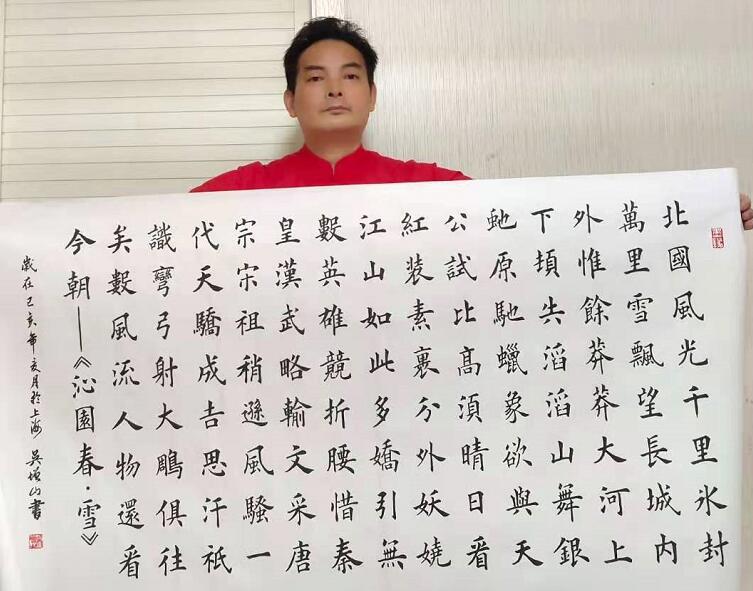 北國風光千里氷封
萬里雪飄望長城内
外惟餘莽莽大河上
下頓失滔滔山舞銀
虵原馳蠟象欲與天
公試比高須晴日看
紅裝素裹分外妖嬈
江山如此多嬌引無
數英雄競折腰惜秦
皇漢武略輸文采唐
宗宋祖稍遜風騷一
代天驕成吉思汗祇
識彎弓射大鵰俱往
矣數風流人物還看
今朝——《沁園春·雪》
歲在己亥年亥月於上海 吳山書